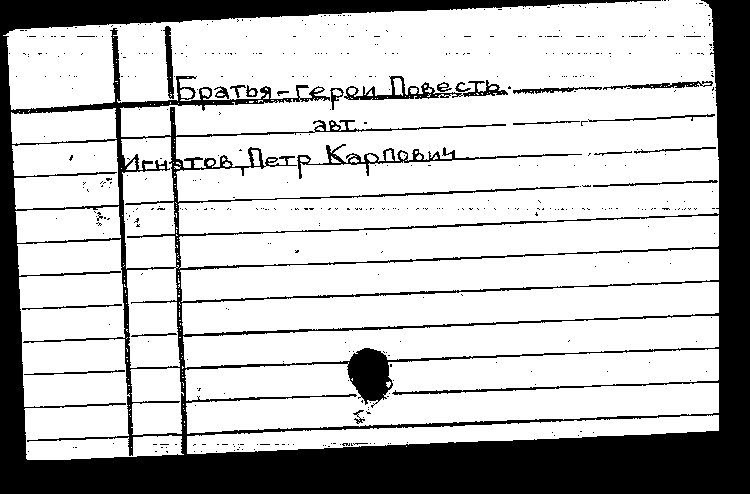 Братья-герои Повесть.
авт.
Игнатов, Петр Карпович